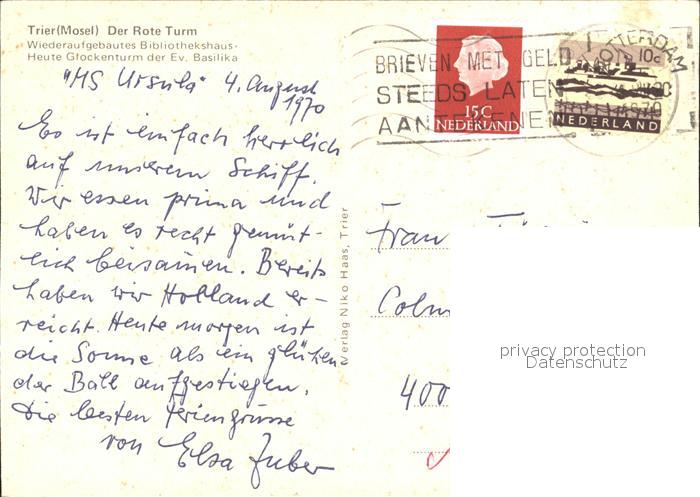 Trier(Mosel) Der Rote Turm
Wiederaufgebautes Bibliothekshaus-
Heute Glockenturm der Ev. Basilika
"MS Ursula" 4. August
1970
Es ist einfach herrlich
auf unserem Schiff.
Wir essen prima und
haben es recht gemüt-
lich beisamen. Bereits
haben wir Holland er-
reicht. Heute morgen ist
die Sonne als ein glühen
der Ball aufgestiegen.
Die besten Feriengrüsse
von Elsa Zuber
Verlag Niko Haas, Trier
BRIEVEN MET GELD
STEEDS LATEN
AANTEKENEN
ROTTERDAM
1970
15C
NEDERLAND
10c
NEDERLAND
Frau
Colm
400
privacy protection
Datenschutz